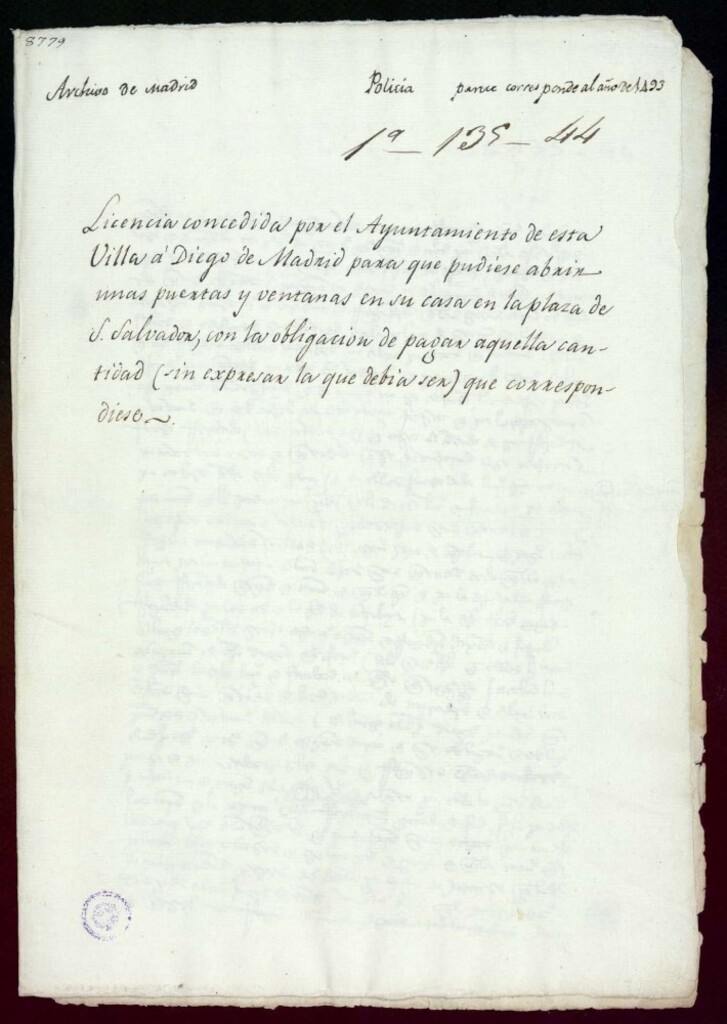 8779
Archivo de Madrid Policía parece corresponde al año de 1493
1ª - 135 - 44
Licencia concedida por el Ayuntamiento de esta
Villa á Diego de Madrid para que pudiese abrir
unas puertas y ventanas en su casa en la plaza de
S. Salvador, con la obligacion de pagar aquella can-
tidad (sin expresar la que debia ser) que correspon-
diese.